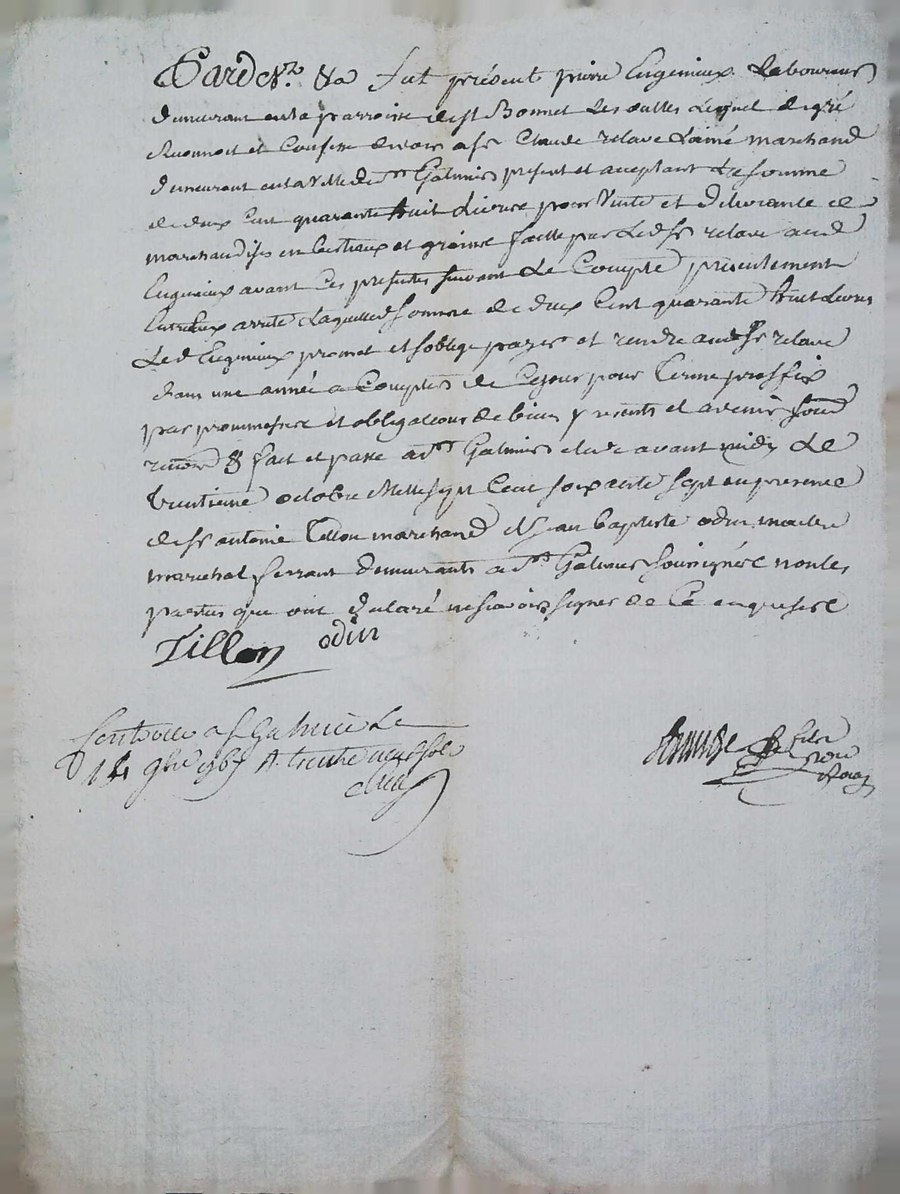 Pardevt. &a fut présent pierre Eugenieux Laboureur
demeurant en la parroisse de st Bonnet les oulles Lequel de gré
Reconnoit et confesse devoir a sr Claude relave L'ainé marchand
demeurant en la ville de st Galmier présent et aceptant La somme
de deux Cent quarante huit Livres pour Vente et délivrance de
marchandises en bestiaux et graines faitte par Led sr relave aud
Eugenieux avant Ces présentes suivant Le Compte présentement
Entreux arreté Laquelle somme de deux Cent quarante huit Livres
Led Eugenieux promet et soblige payer et rendre aud sr relave
dans une année a Compter de Cejour pour terme preffix
par prommesses et obligations de biens présents et avenir soumd
renond & fait et passé a st Galmier etude avant midy Le
Vientieme octobre Mille sept Cent soixante sept en presence
de sr antoine Tillon marchand & jean baptiste odin maitre
marechal ferrant demeurants a st Galmier soussignés non les
parties qui ont déclaré ne scavoir signer de Ce enquises
Tillon odin
Controllé a st Galmier Le
14 9bre 1767 R. trente neuf sols